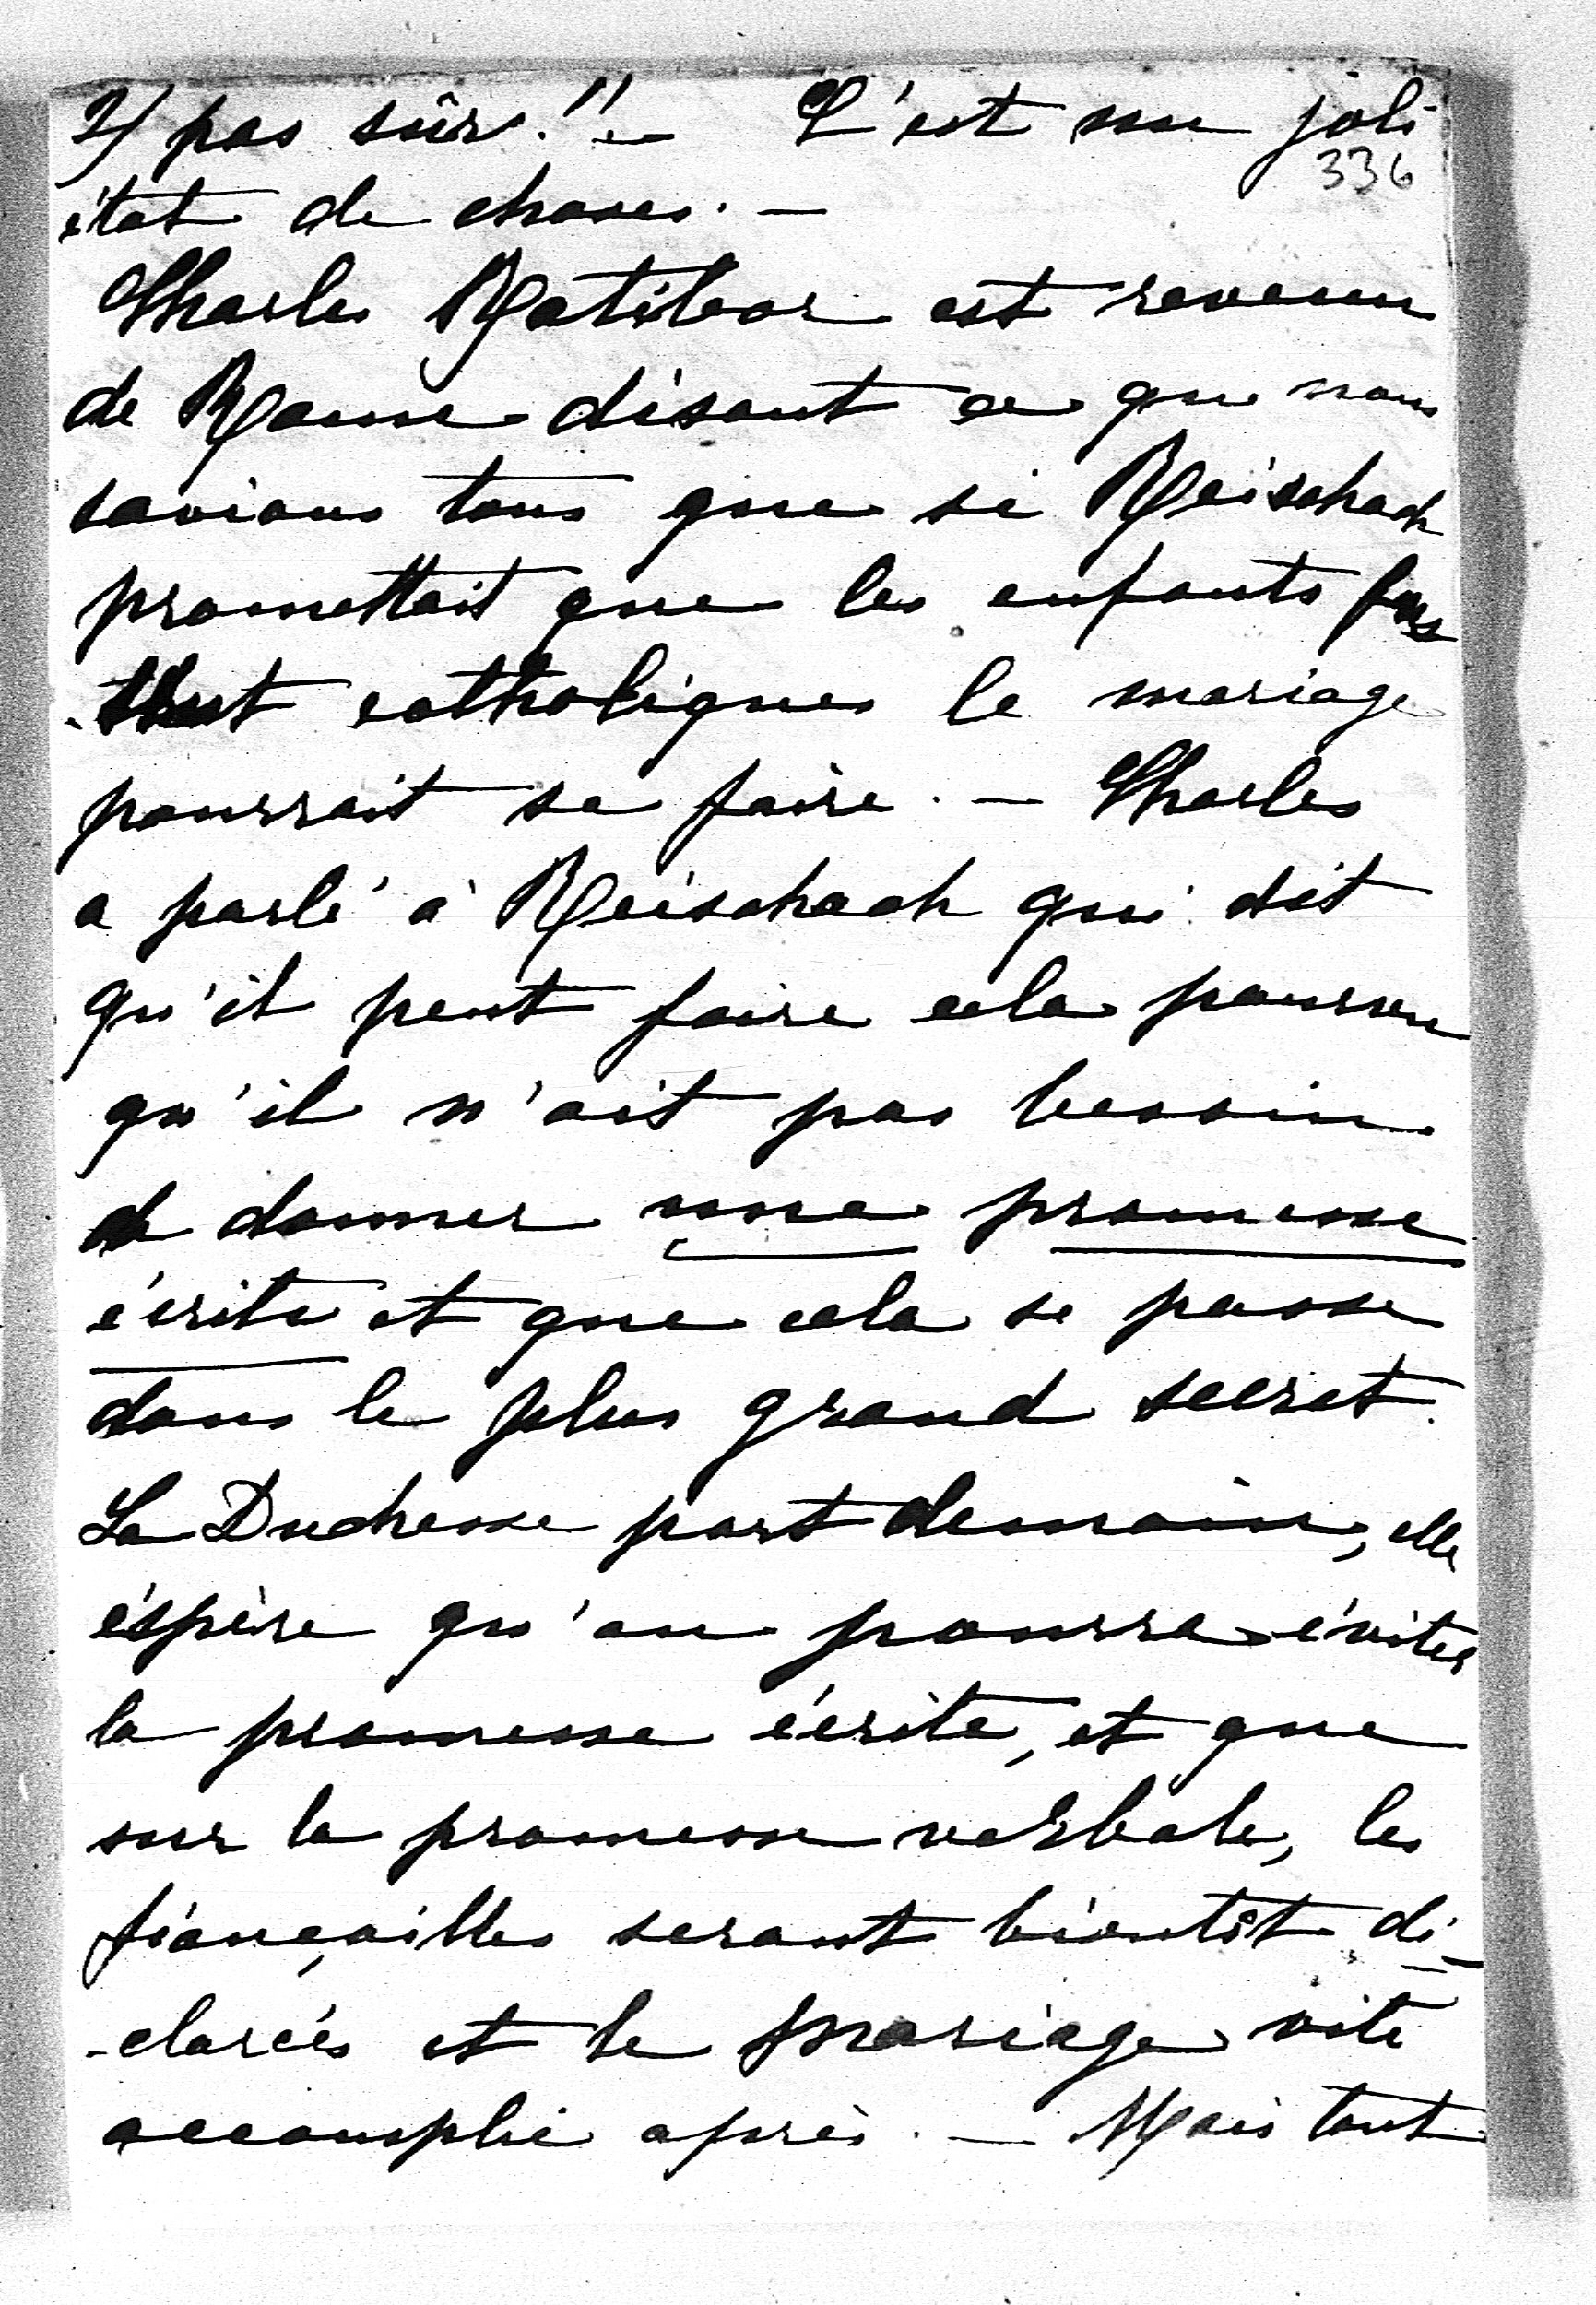 2/ pas sûr!! — C'est un joli
336
état de choses. —
Charles Ratibor est revenu
de Rome disant ce que nous
savions tous que si Reischach
promettait que les enfants fus
-sent catholiques le mariage
pourrait se faire. — Charles
a parlé à Reischach qui dit
qu'il peut faire cela pourvu
qu'il n'ait pas besoin
de donner une promesse
écrite et que cela se passe
dans le plus grand secret.
La Duchesse part demain, elle
éspère qu'on pourra éviter
la promesse écrite, et que
sur la promesse verbale, les
fiançailles seront bientôt dé-
-clarées et le mariage vite
accomplie après. — Mais tout